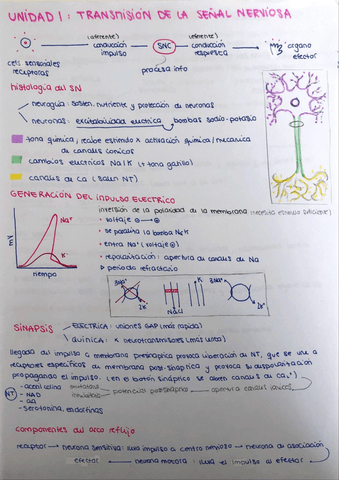 UNIDAD 1: TRANSMISIÓN DE LA SEÑAL NERVIOSA
(aferente) (eferente)
conducción → SNC → conducción → órgano
impulso respuesta efector
cels sensoriales
receptoras
procesa info
histología del SN
neuroglia: sostén, nutriente y protección de neuronas
neuronas: excitabilidad electrica bombas sodio-potasio
zona química, recibe estímulo x activación química/mecanica
de canales iónicos
cambios electricos Na/K (+ zona gatillo)
canales de Ca (salen NT)
GENERACIÓN DEL IMPULSO ELECTRICO
mV
Na⁺
K⁺
tiempo
inversión de la polaridad de la membrana (necesita estímulo suficiente)
• voltaje ⊖ → ⊕
• se paraliza la bomba Na K
• entra Na⁺ (voltaje ⊕)
• repolarización: apertura de canales de Na
▷ periodo refractario
3Na⁺ 2K⁺ NaCl K 3Na⁺ 2K⁺
SINAPSIS
ELECTRICA: uniones GAP (más rapida)
QUÍMICA: x neurotransmisores (más lenta)
llegada del impulso a membrana presináptica provoca liberación de NT, que se une a
receptores específicos de membrana post-sináptica y provoca su despolarización
propagando el impulso. (en el botón sináptico se abren canales de Ca⁺)
NT
- acetilcolina
- NAD
- aa
- serotonina, endorfinas
excitatorios
inhibitorios
potencial postsináptico → apertura canales iónicos
componentes del arco reflejo
receptor → neurona sensitiva: lleva impulso a centro nervioso → neurona de asociación
efector ← neurona motora: lleva el impulso al efector